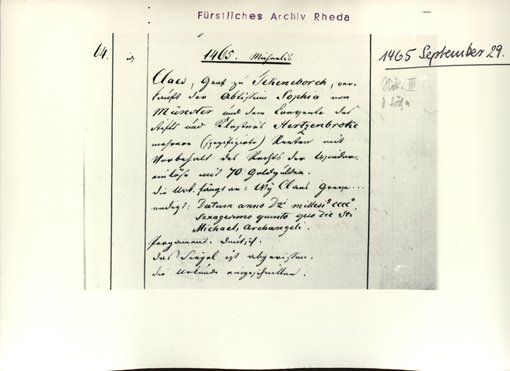 Fürstliches Archiv Rheda
14.
1465. Michaelis
1465 September 29.
Claes, Graf zu Tekeneborch, ver-
kauft der Abtissin Sophia von
Münster und dem Convente des
Stifts und Closters Hertzenbroke
mehrere (specifizirte) Renten mit
Vorbehalt des Rechts der Wieder-
einlöse mit 70 Goldgulden.
die Urk. fängt an: Wy Claes Greve...
endegt: Datum anno Dni millesio cccc°
Sexagesimo quinto ipso die Sti
Michaelis Archangeli.
Pergament. Deutsch.
das Siegel ist abgerissen.
die Urkunde eingeschnitten.